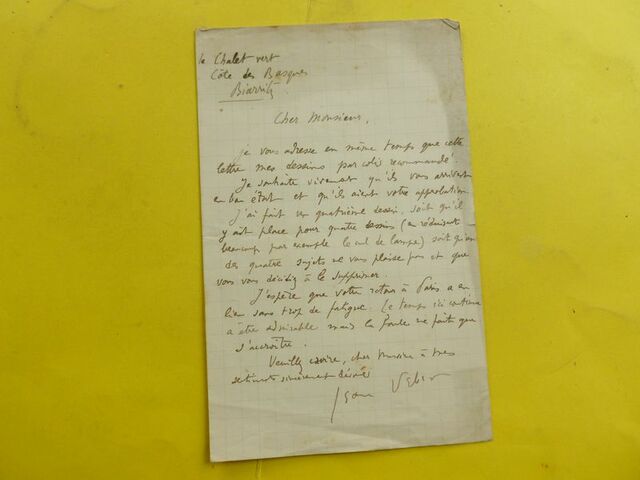 le Chalet vert
Côte des Basques
Biarritz
Cher Monsieur,
je vous adresse en même temps que cette
lettre mes dessins par colis recommandé.
Je souhaite vivement qu'ils vous arrivent
en bon état et qu'ils aient votre approbation
J'ai fait un quatrième dessin, soit qu'il
y ait place pour quatre dessins (en réduisant
beaucoup par exemple le cul de lampe) soit qu'un
des quatre sujets ne vous plaise pas et que
vous vous décidiez à le supprimer.
J'espère que votre retour à Paris a eu
lieu sans trop de fatigue. Le temps ici continue
a être admirable mais la foule ne fait que
s'accroître.
Veuillez croire, cher Monsieur à mes
sentiments sincèrement dévoués
Jean Veber